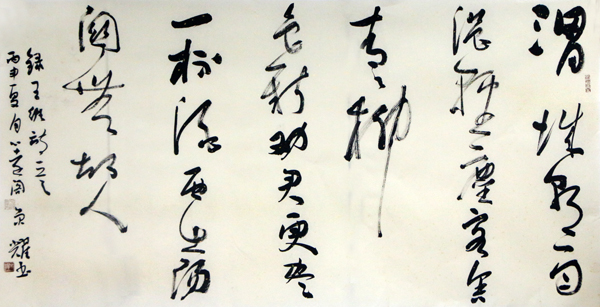 渭城朝雨
浥輕塵客舍
青々柳
色新劝君更尽
一杯酒西出陽
關無故人
録王維詩一首
丙申夏月 耀书